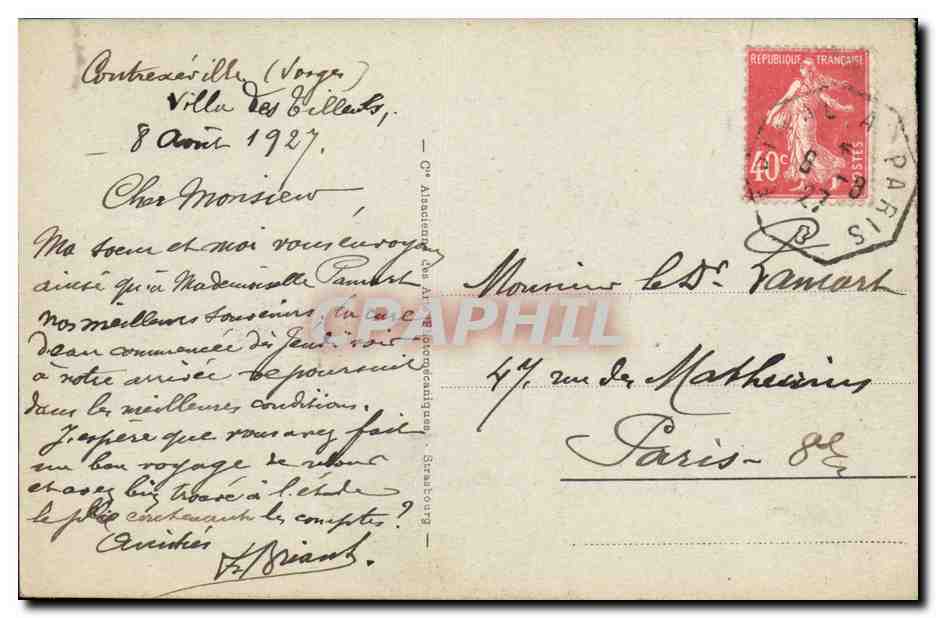 Contrexéville (Vosges)
Villa des Tilleuls,
8 Août 1927.
Cher Monsieur
Ma soeur et moi vous envoyons
ainsi qu'à Mademoiselle Pamart
nos meilleurs souvenirs. la cure
d'eau commencée dès Jeudi soir
à notre arrivée se poursuit
dans les meilleures conditions.
J'espère que vous avez fait
un bon voyage de retour
et avez bien trouvé à l'étude
le plie contenant les comptes?
Amitiés
Briant.
Cie Alsacienne des Arts Photomécaniques, - Strasbourg
RÉPUBLIQUE FRANÇAISE
40c
POSTES
PARIS
8 - 8
27
Monsieur le Dr. Pamart
47, rue des Mathurins
Paris - 8e
CPAPHIL